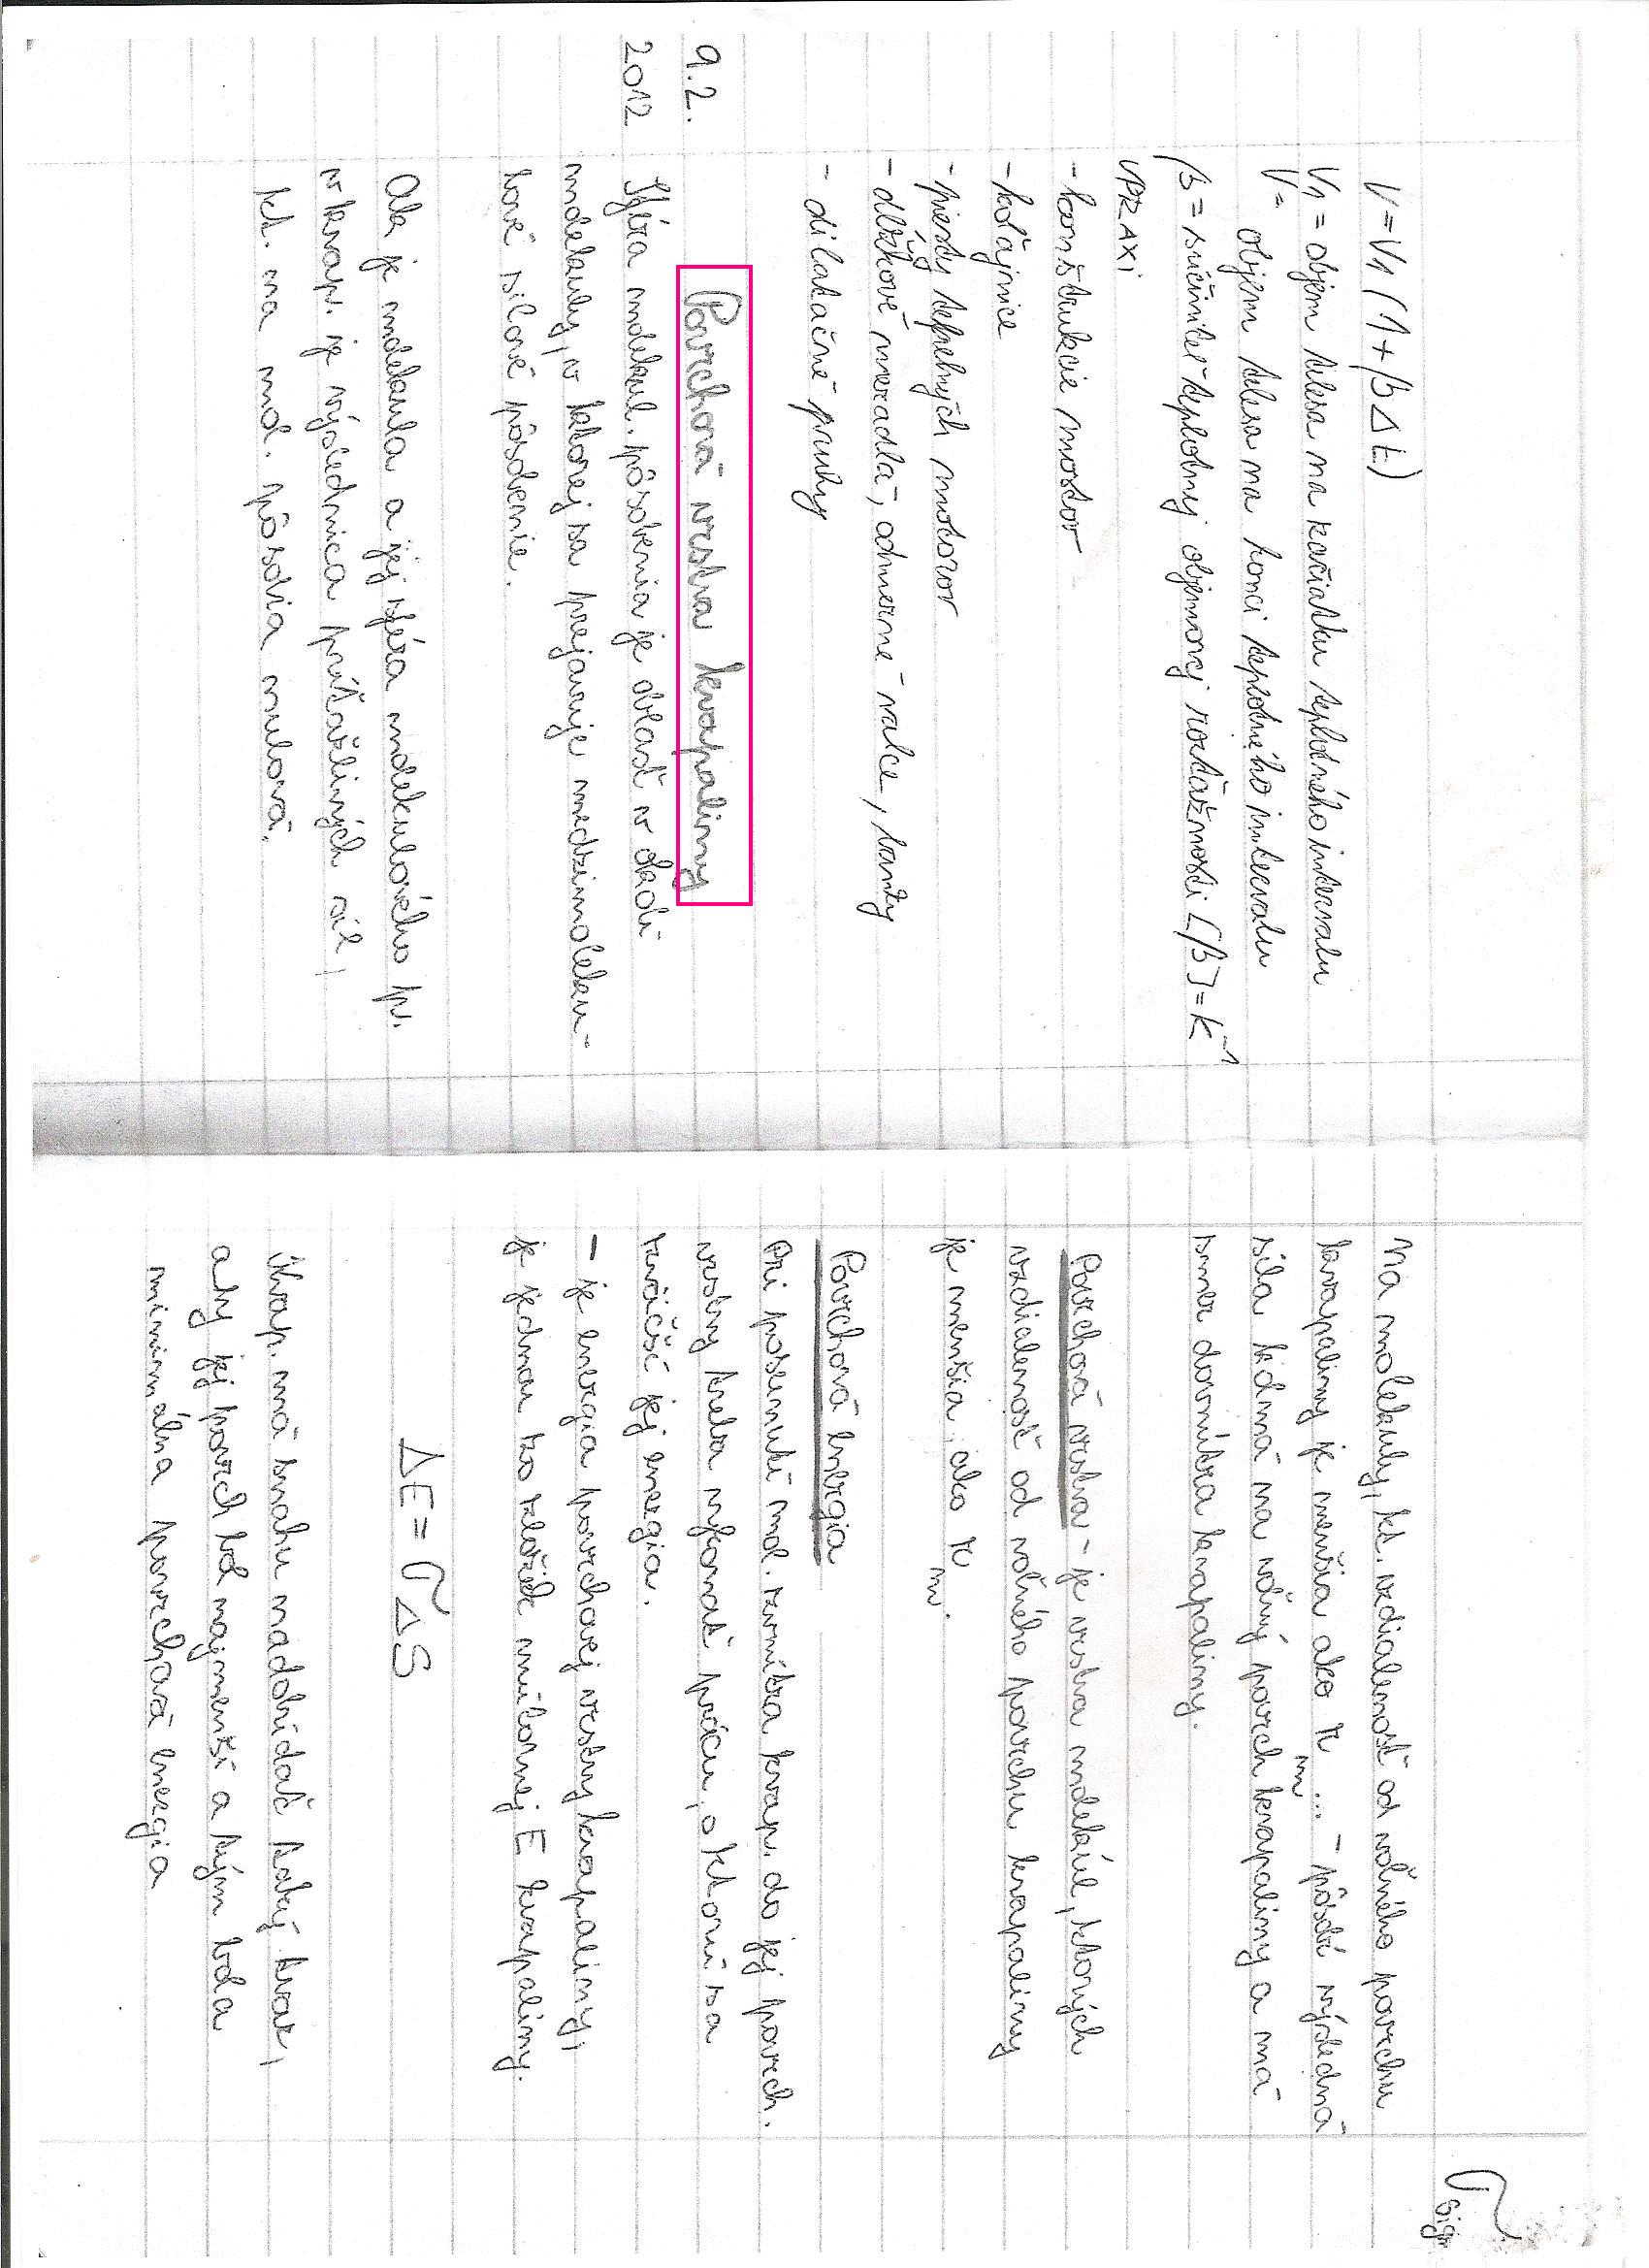 V = V₁ (1 + β Δ t)
V₁ = objem telesa na začiatku teplotného intervalu
V = objem telesa na konci teplotného intervalu
β = súčiniteľ teplotnej objemovej rozťažnosti [β] = K⁻¹
V PRAXI
- konštrukcie mostov
- koľajnice
- piesty tepelných motorov
- dĺžkové meradlá, odmerné valce, banky
- dilatačné pruhy
9.2. Povrchová vrstva kvapaliny
2012 Sféra molekul. pôsobenia je oblasť v okolí
molekuly, v ktorej sa prejavuje medzimoleku-
lové silové pôsobenie.
Ak je molekula a jej sféra molekulového p.
v kvap. je výslednica príťažlivých síl,
kt. na mol. pôsobia nulová.
Na molekuly, kt. vzdialenosť od voľného povrchu
kvapaliny je menšia ako r m ... - pôsobí výsledná
sila kolmá na voľný povrch kvapaliny a má
smer dovnútra kvapaliny.
Povrchová vrstva - je vrstva molekúl, ktorých
vzdialenosť od voľného povrchu kvapaliny
je menšia, ako r m.
Povrchová energia
Pri posunutí mol. zvnútra kvap. do jej povrch.
vrstvy treba vykonať prácu, o ktorú sa
zväčší jej energia.
- je energia povrchovej vrstvy kvapaliny,
je jednou zo zložiek vnútornej E kvapaliny.
ΔE = σ ΔS
Kvap. má snahu nadobúdať taký tvar,
aby jej povrch bol najmenší a tým bola
minimálna povrchová energia
σ